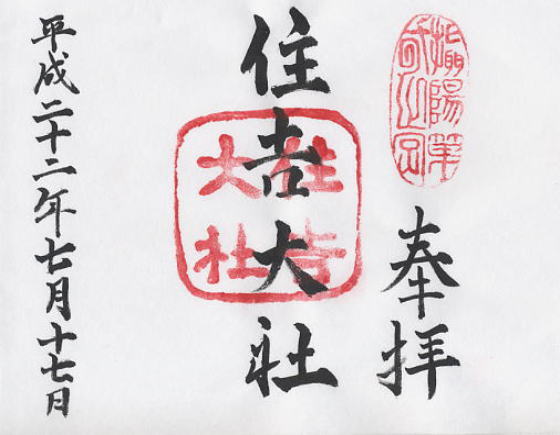 陽第
之宮
奉拝
住吉大社
住吉
大社
平成二十二年七月十七日